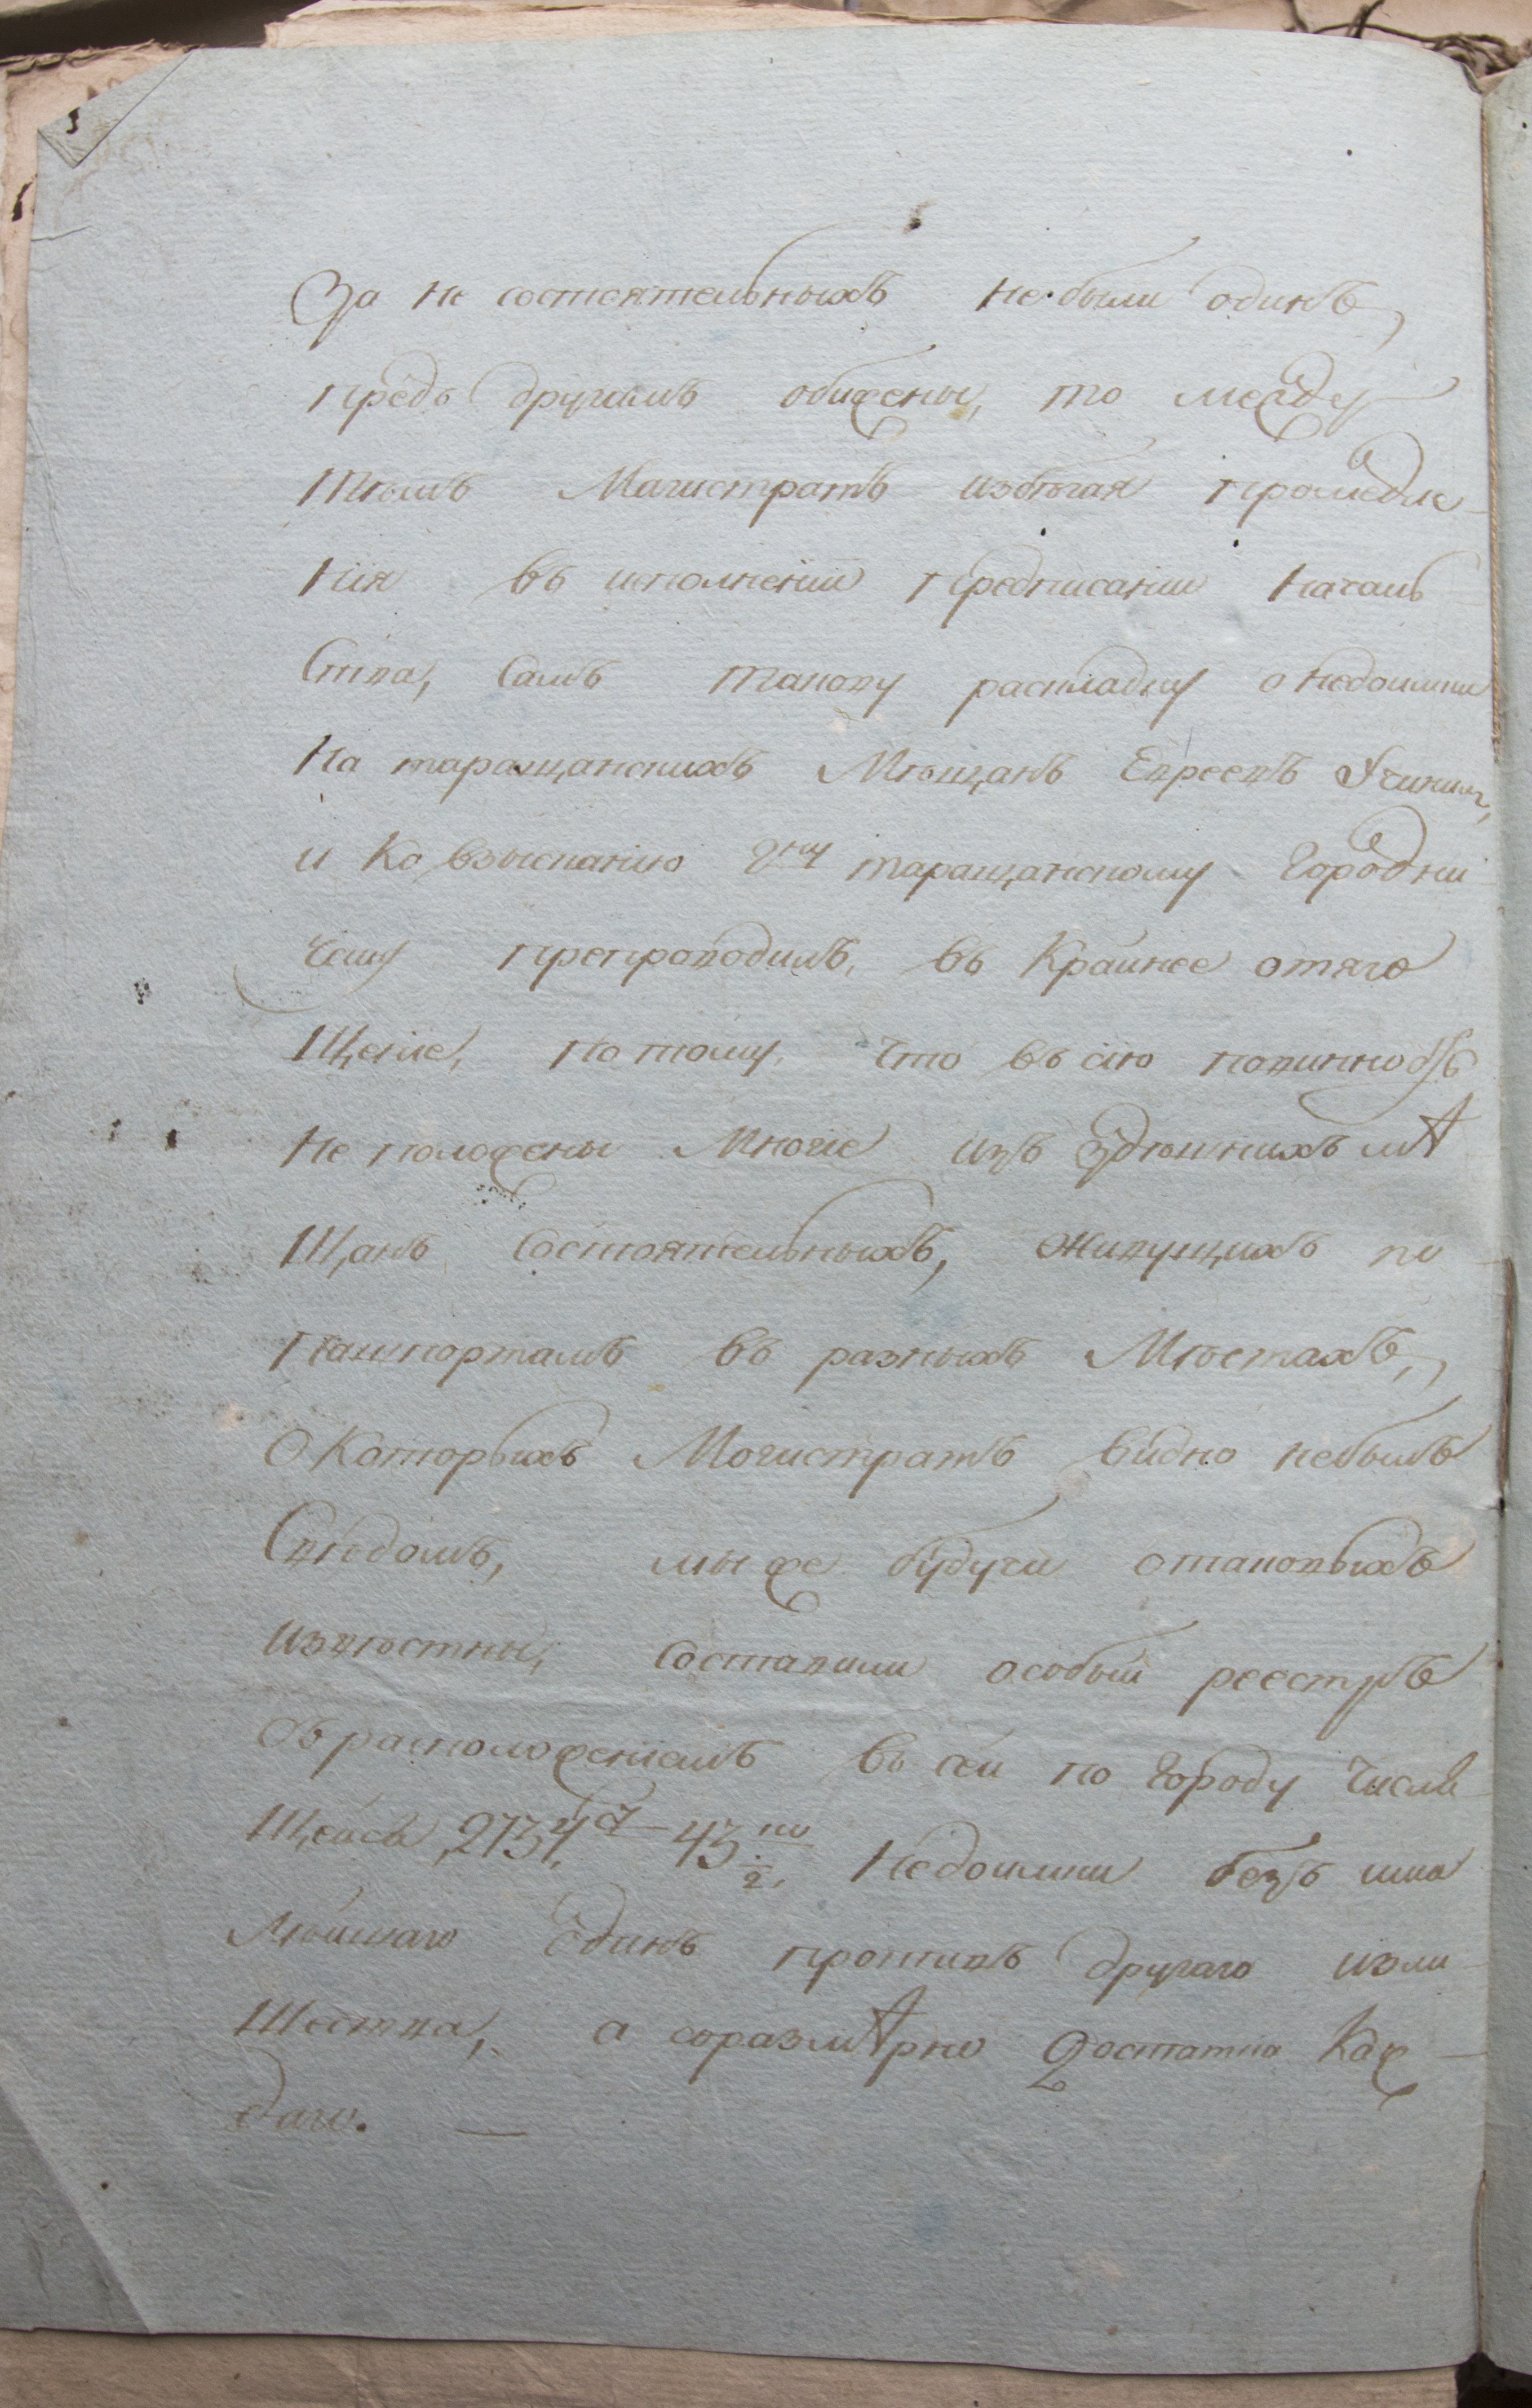 За не состоятельныхъ не были одинъ,
предъ другимъ обижены, то между
тѣмъ Магистратъ избѣгая промедле-
нія въ исполненіи предписаніи началь-
ства, самъ таковую раскладку о недоимки
На таращанскихъ Мѣщанъ Евреевъ Учинилъ,
и Ко взысканію Гну таращанскому Городни
чему препроводилъ, въ Крайнее отяго
щеніе, по тому, что въ сію повинность
Не положены Многіе изъ здѣшнихъ мѣ
щанъ Состоятельныхъ, живущихъ по
пашпортамъ въ разныхъ Мѣстахъ,
О Которыхъ Могистратъ видно небылъ
Свѣдомъ, мы же будучи о таковыхъ
извѣстны, Составили особый реестръ
съ расположеніемъ въ сей по Городу Числя
щейся, 2134 43 1/2, Недоимки безъ ма
лѣйшаго Единъ противъ другаго изли
шества, а соразмѣрно Достатка Каж-
даго. —